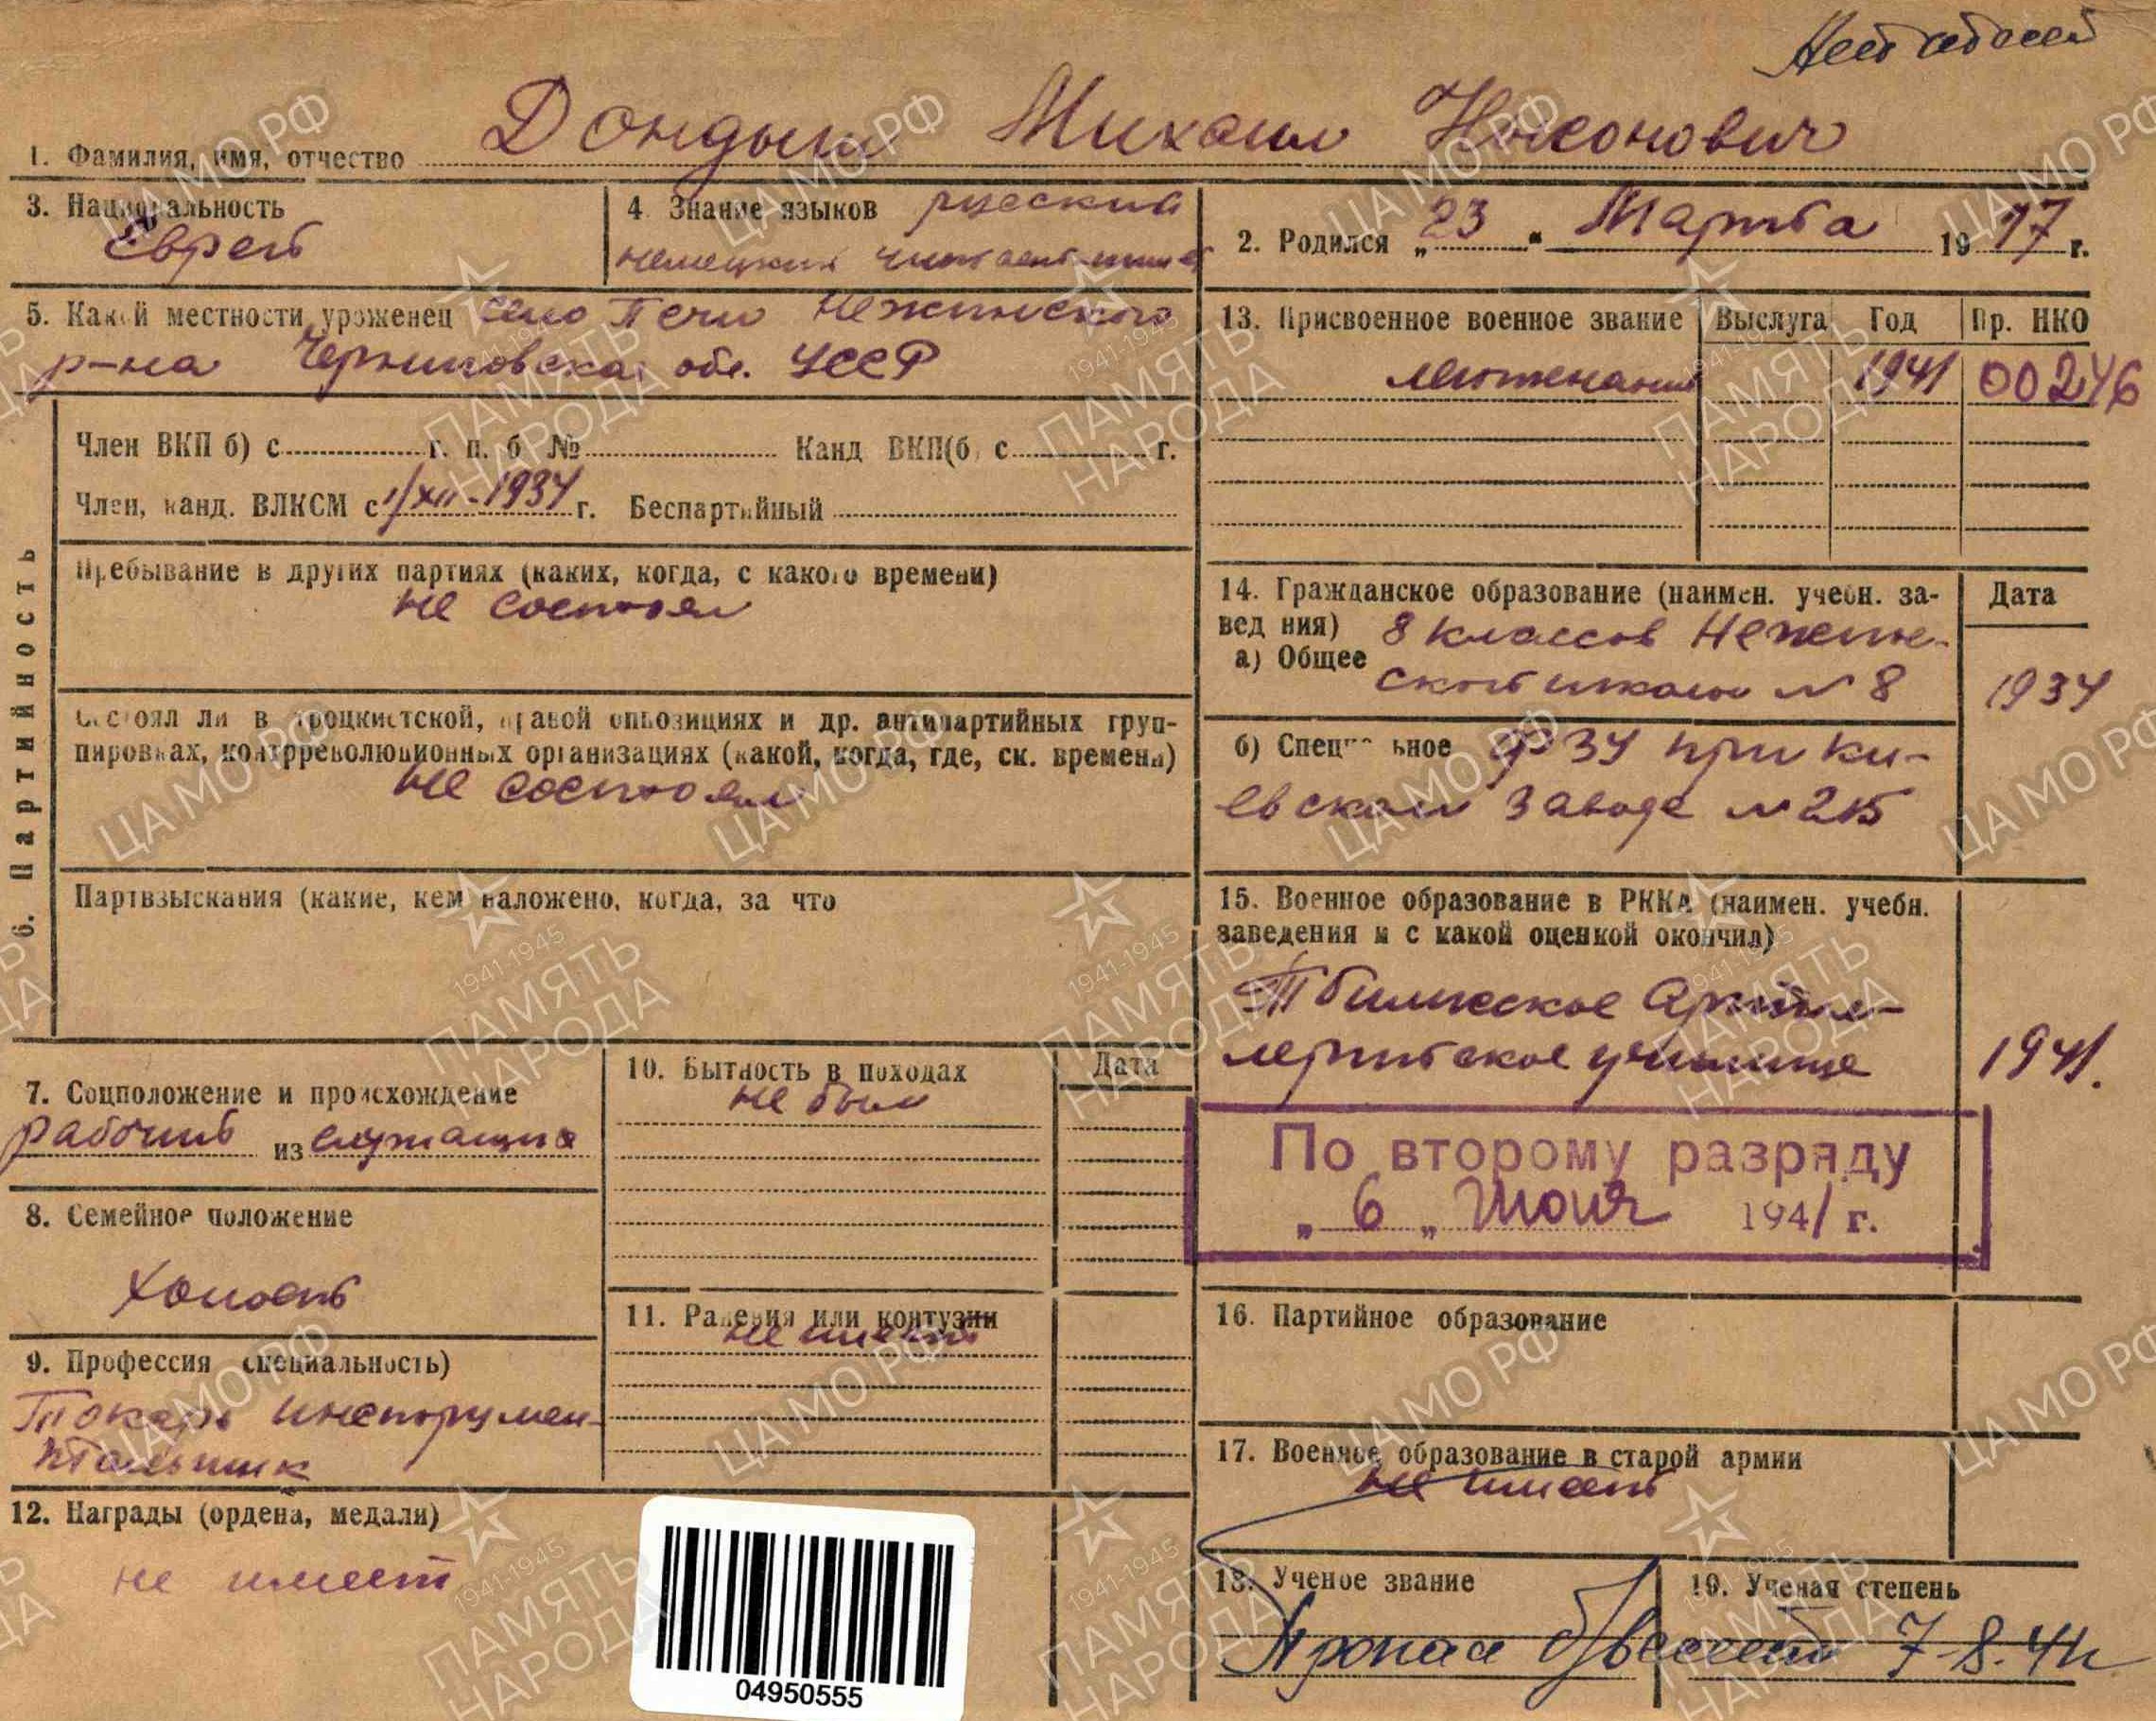 1. Фамилия, имя, отчество Дондыш Михаил Нисонович
3. Национальность Еврей
4 Знание языков русский
немецкий читает-пишет
2. Родился „23" Марта 1917 г.
5. Какой местности уроженец село Печи Нежинского
р-на Черниговская обл. УССР
13. Присвоенное военное звание Выслуга Год Пр. НКО
лейтенант 1941 00246
6. Партийность
Член ВКП б) с г. п. б № Канд ВКП(б) с г.
Член, канд. ВЛКСМ с 1/XII-1934 г. Беспартийный
Пребывание в других партиях (каких, когда, с какого времени)
не состоял
Состоял ли в троцкистской, правой оппозициях и др. антипартийных груп-
пировках, контрреволюционных организациях (какой, когда, где, ск. времени)
не состоял
Партвзыскания (какие, кем наложено, когда, за что
14. Гражданское образование (наимен. учебн. за-
ведения) Дата
а) Общее 8 классов Нежин-
ской школы № 8 1934
б) Специальное ФЗУ при Ки-
евском заводе № 225
15. Военное образование в РККА (наимен. учебн.
заведения и с какой оценкой окончил)
Тбилисское Артил-
лерийское училище 1941.
По второму разряду
„6" Июня 1941 г.
7. Соцположение и происхождение
рабочий из служащих
8. Семейное положение
Холост
9. Профессия специальность)
Токарь инструмен-
тальщик
10. Бытность в походах Дата
не был
11. Ранения или контузии
не имеет
12. Награды (ордена, медали)
не имеет
16. Партийное образование
17. Военное образование в старой армии
не имеет
18. Ученое звание
19. Ученая степень
Пропал б/вести 7-8.41г
04950555
ЦАМО РФ
1941-1945
ПАМЯТЬ
НАРОДА